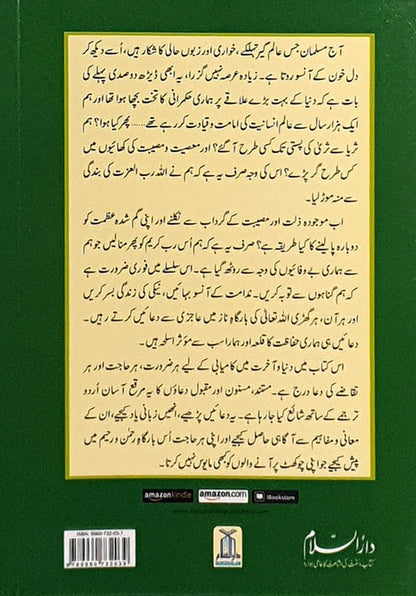 آج مسلمان جس عالم گیر تہلکے، خواری اور زبوں حالی کا شکار ہیں، اُسے دیکھ کر
دل خون کے آنسو روتا ہے۔ زیادہ عرصہ نہیں گزرا، یہ ابھی ڈیڑھ دو صدی پہلے کی
بات ہے کہ دنیا کے بہت بڑے علاقے پر ہماری حکمرانی کا تخت بچھا ہوا تھا اور ہم
ایک ہزار سال سے عالم انسانیت کی امامت و قیادت کر رہے تھے...... پھر کیا ہوا؟ ہم
ثریا سے ثریٰ کی پستی تک کس طرح آ گئے؟ اور معصیت و مصیبت کی کھائیوں میں
کس طرح گر پڑے؟ اس کی وجہ صرف یہ ہے کہ ہم نے اللہ رب العزت کی بندگی
سے منہ موڑ لیا۔
اب موجودہ ذلت اور مصیبت کے گرداب سے نکلنے اور اپنی گم شدہ عظمت کو
دوبارہ پا لینے کا کیا طریقہ ہے؟ صرف یہ ہے کہ ہم اُس رب کریم کو پھر منا لیں جو ہم
سے ہماری بے وفائیوں کی وجہ سے روٹھ گیا ہے۔ اس سلسلے میں فوری ضرورت ہے
کہ ہم گناہوں سے توبہ کریں۔ ندامت کے آنسو بہائیں، نیکی کی زندگی بسر کریں
اور ہر آن، ہر گھڑی اللہ تعالیٰ کی بارگاہِ ناز میں عاجزی سے دعائیں کرتے رہیں۔
دعائیں ہی ہماری حفاظت کا قلعہ اور ہمارا سب سے مؤثر اسلحہ ہیں۔
اس کتاب میں دنیا و آخرت میں کامیابی کے لیے ہر ضرورت، ہر حاجت اور ہر
تقاضے کی دعا درج ہے۔ مستند، مسنون اور مقبول دعاؤں کا یہ مرقع آسان اُردو
ترجمے کے ساتھ شائع کیا جا رہا ہے۔ یہ دعائیں پڑھیے، انھیں زبانی یاد کیجیے، ان کے
معانی و مفاہیم سے آگاہی حاصل کیجیے اور اپنی ہر حاجت اُس بارگاہِ رحمٰن و رحیم میں
پیش کیجیے جو اپنی چوکھٹ پر آنے والوں کو کبھی مایوس نہیں کرتا۔
amazonkindle
amazon.com
iBookstore
دارالسلام
کتاب و سنت کی اشاعت کا عالمی ادارہ